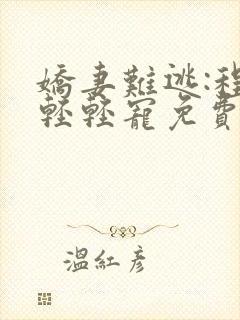 嬌妻難逃:程
輕輕寵免費
溫紅彥